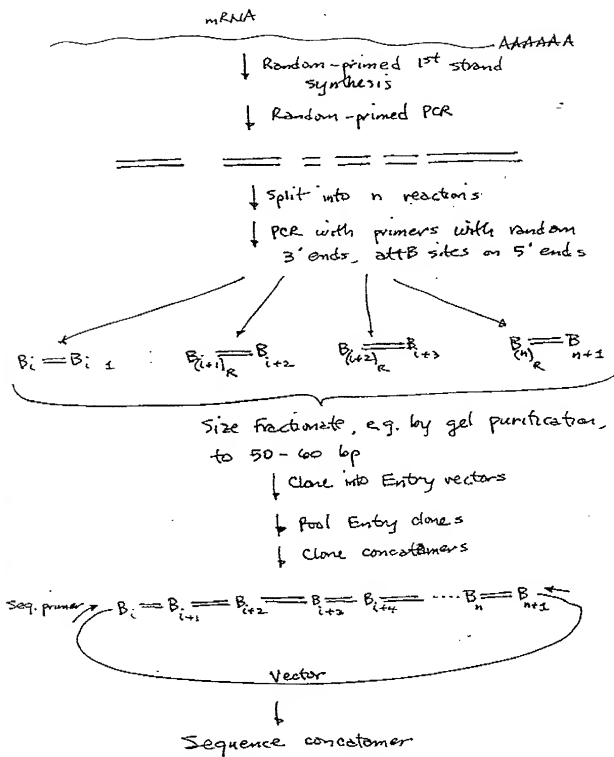 mRNA
AAAAAA
Random-primed 1st strand
synthesis
Random-primed PCR
Split into n reactions
PCR with primers with random
3' ends, attB sites on 5' ends
Bi Bi 1 : B(i+1)R Bi+2 B(i+2)R Bi+3 B(n)R Bn+1
Size fractionate, e.g. by gel purification,
to 50-60 bp
Clone into Entry vectors
Pool Entry clones
Clone concatamers
Seq. primer Bi Bi+1 Bi+2 Bi+3 Bi+4 .... Bn Bn+1
Vector
Sequence concatomer